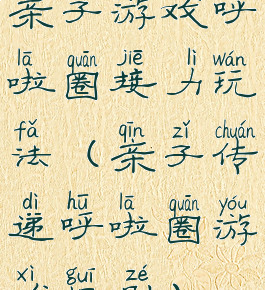 亲子游戏呼
lā quān jiē lì wán
啦圈接力玩
fǎ qīn zǐ chuán
法(亲子传
dì hū lā quān yóu
递呼啦圈游
xì guī zé